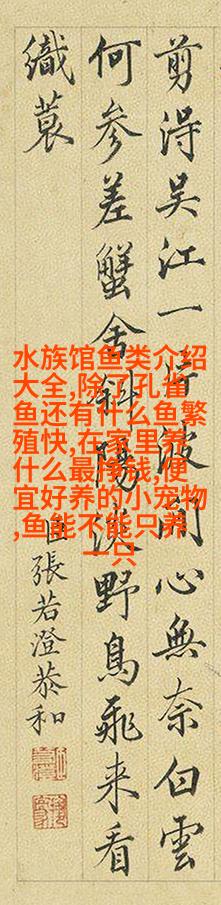 剪淂吴江一波閒心無奈白雲
何参差蟹舍斜陽野鳥飛来看
織蓑
臣張若澄恭和
水族馆鱼类介绍
大全,除了孔雀
鱼还有什么鱼繁
殖快,在家里养
什么最挣钱,便
宜好养的小宠物
,鱼能不能只养
一只